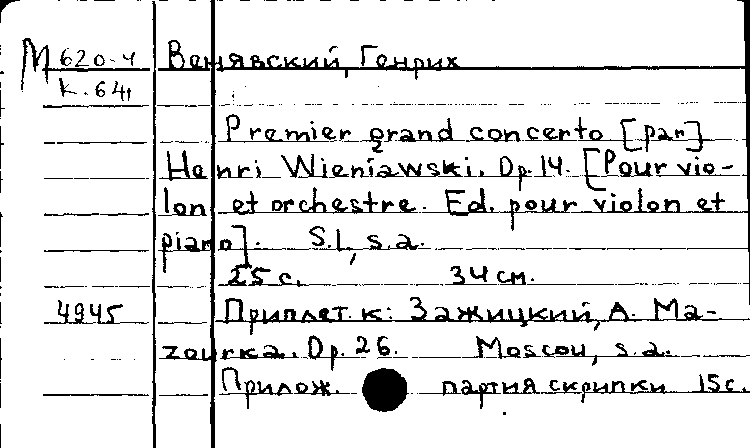 М 620-4 Венявский, Генрих
к. 641
Premier grand concerto [par]
Henri Wieniawski. Op. 14. [Pour vio-
lon et orchestre. Ed. pour violon et
piano]. S.l., s.a.
25 с. 34 см.
4945 Приплет. к: Зажицкий, А. Ma-
zourka. Op. 26. Moscou, s.a.
Прилож. партия скрипки 15 с.